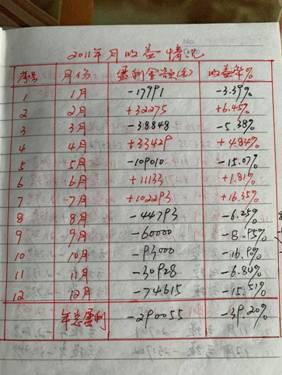 2011年月收益情况
序号 月份 盈利金额(元) 收益率%
1 1月 -17991 -3.39%
2 2月 +32275 +6.45%
3 3月 -38848 -5.38%
4 4月 +33429 +4.84%
5 5月 -109010 -15.07%
6 6月 +11133 +1.81%
7 7月 +102293 +16.35%
8 8月 -44793 -6.25%
9 9月 -60000 -8.95%
10 10月 -93000
11 11月 -30928 -6.84%
12 12月 -74615 -15.51%
年总盈利 -290055 -39.20%